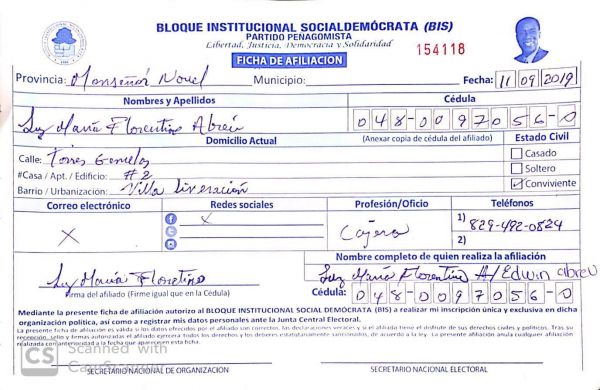 BLOQUE INSTITUCIONAL SOCIALDEMÓCRATA (BIS)
PARTIDO PEÑAGOMISTA
Libertad, Justicia, Democracia y Solidaridad
154118
FICHA DE AFILIACION
Provincia: Monseñor Nouel Municipio: Fecha: 11 09 2019
Nombres y Apellidos Cédula
Luz María Florentino Abreu 048-0097056-0
Domicilio Actual (Anexar copia de cédula del afiliado) Estado Civil
Calle: Torres Gemelas Casado
#Casa / Apt. / Edificio: #2 Soltero
Barrio / Urbanización: Villa Liveración Conviviente
Correo electrónico Redes sociales Profesión/Oficio Teléfonos
X X Cajera 1) 829-492-0824
2)
Nombre completo de quien realiza la afiliación
Luz María Floretino Luz María Florentino A/Edwin abreu
Firma del afiliado (Firme igual que en la Cédula) Cédula: 048-0097056-0
Mediante la presente ficha de afiliación autorizo al BLOQUE INSTITUCIONAL SOCIAL DEMÓCRATA (BIS) a realizar mi inscripción única y exclusiva en dicha
organización política, así como a registrar mis datos personales ante la Junta Central Electoral.
La presente ficha de afiliación es válida si los datos ofrecidos por el afiliado son correctos, las declaraciones veraces y si el afiliado tiene el disfrute de sus derechos civiles y políticos. Tras su
recepción, sello y firmas autorizadas el afiliado ejercerá todos los derechos y los deberes estatutariamente sancionados, de acuerdo a la ley electoral. La persona afiliada actualmente queda
realizada con anterioridad a la fecha que aparece en esta ficha.
CS Scanned with
CamScanner
SECRETARIO NACIONAL DE ORGANIZACION SECRETARIO NACIONAL ELECTORAL